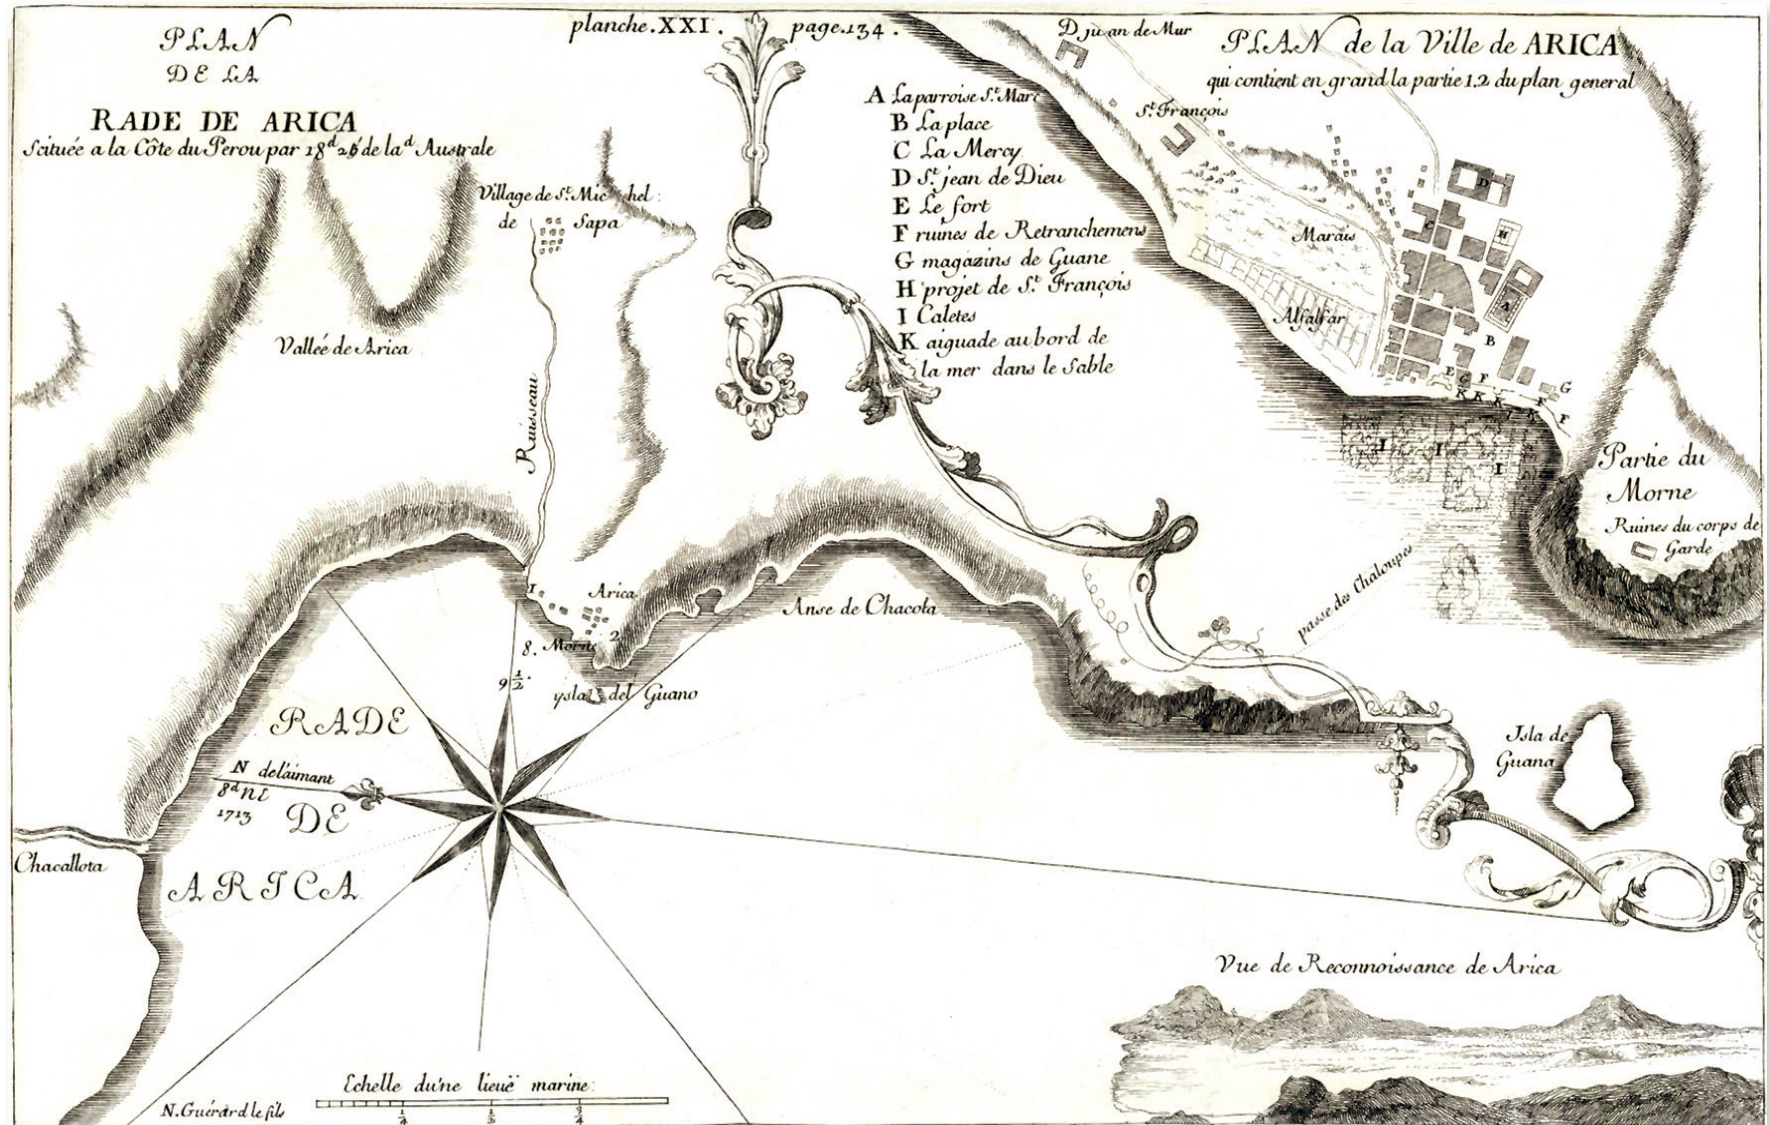 planche.XXI. page.134.
PLAN
DE LA
RADE DE ARICA
Scituée a la Côte du Perou par 18.d 26' de la.d Australe
Village de S.t Mic hel
de Sapa
Vallée de Arica
Ruisseau
1 Arica
2
8. Morne
9 1/2.
ysla del Guano
Anse de Chacota
RADE
DE
ARICA
N de l'aimant
8.d NE
1713
Chacallota
Echelle du'ne lieuë marine
1/4 1/2 3/4
N. Guérard le fils
A La parroise S.t Marc
B La place
C La Mercy
D S.t jean de Dieu
E Le fort
F ruines de Retranchemens
G magazins de Guane
H projet de S.t François
I Caletes
K aiguade au bord de
la mer dans le Sable
PLAN de la Ville de ARICA
qui contient en grand la partie 1,2 du plan general
D juan de Mur
S.t François
Marais
Alfalfar
D
C
H
A
B
E G F G
K K K K F
F
I I I
Partie du
Morne
Ruines du corps de
Garde
passe des Chaloupes
Isla de
Guana
Vue de Reconnoissance de Arica